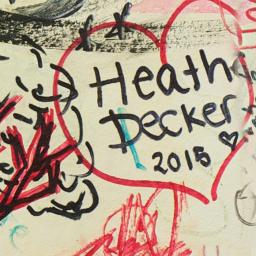 Heath
Decker
2015